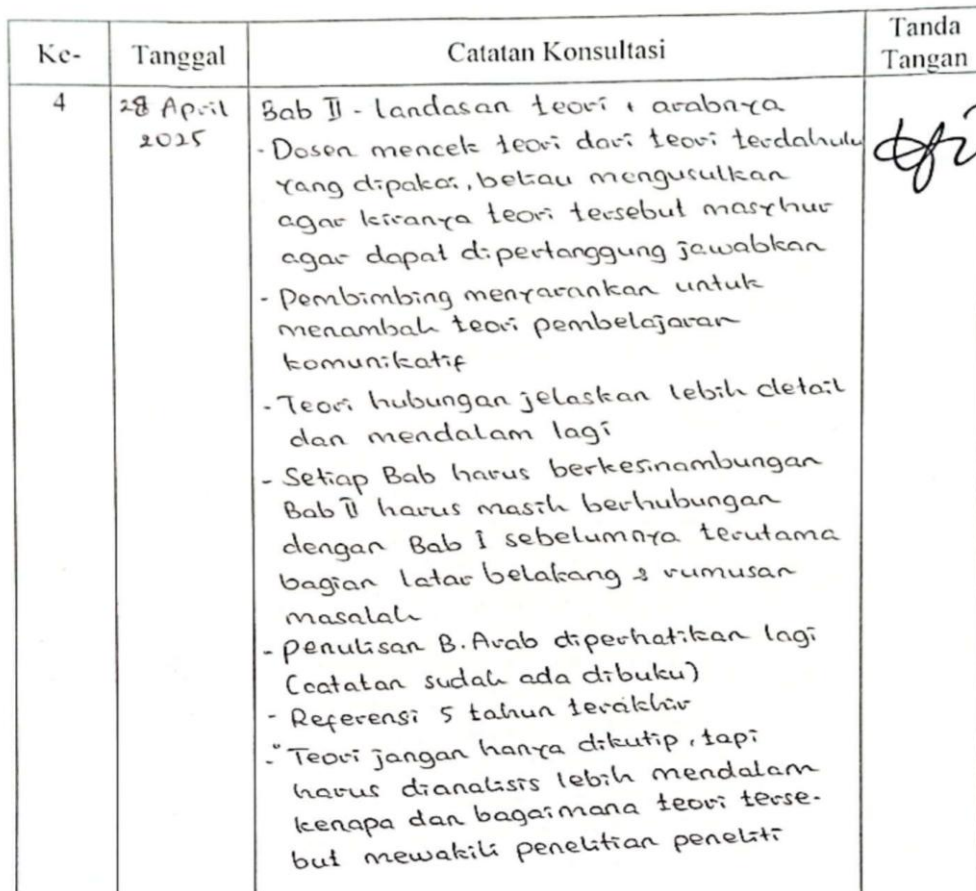 Ke-
Tanggal
Catatan Konsultasi
Tanda
Tangan
4
28 April
2025
Bab II - landasan teori + arabnya
- Dosen mencek teori dari teori terdahulu
yang dipakai, beliau mengusulkan
agar kiranya teori tersebut masyhur
agar dapat dipertanggung jawabkan
- Pembimbing menyarankan untuk
menambah teori pembelajaran
komunikatif
- Teori hubungan jelaskan lebih detail
dan mendalam lagi
- Setiap Bab harus berkesinambungan
Bab II harus masih berhubungan
dengan Bab I sebelumnya terutama
bagian latar belakang & rumusan
masalah
- penulisan B. Arab diperhatikan lagi
(catatan sudah ada dibuku)
- Referensi 5 tahun terakhir
- Teori jangan hanya dikutip, tapi
harus dianalisis lebih mendalam
kenapa dan bagaimana teori terse-
but mewakili penelitian peneliti